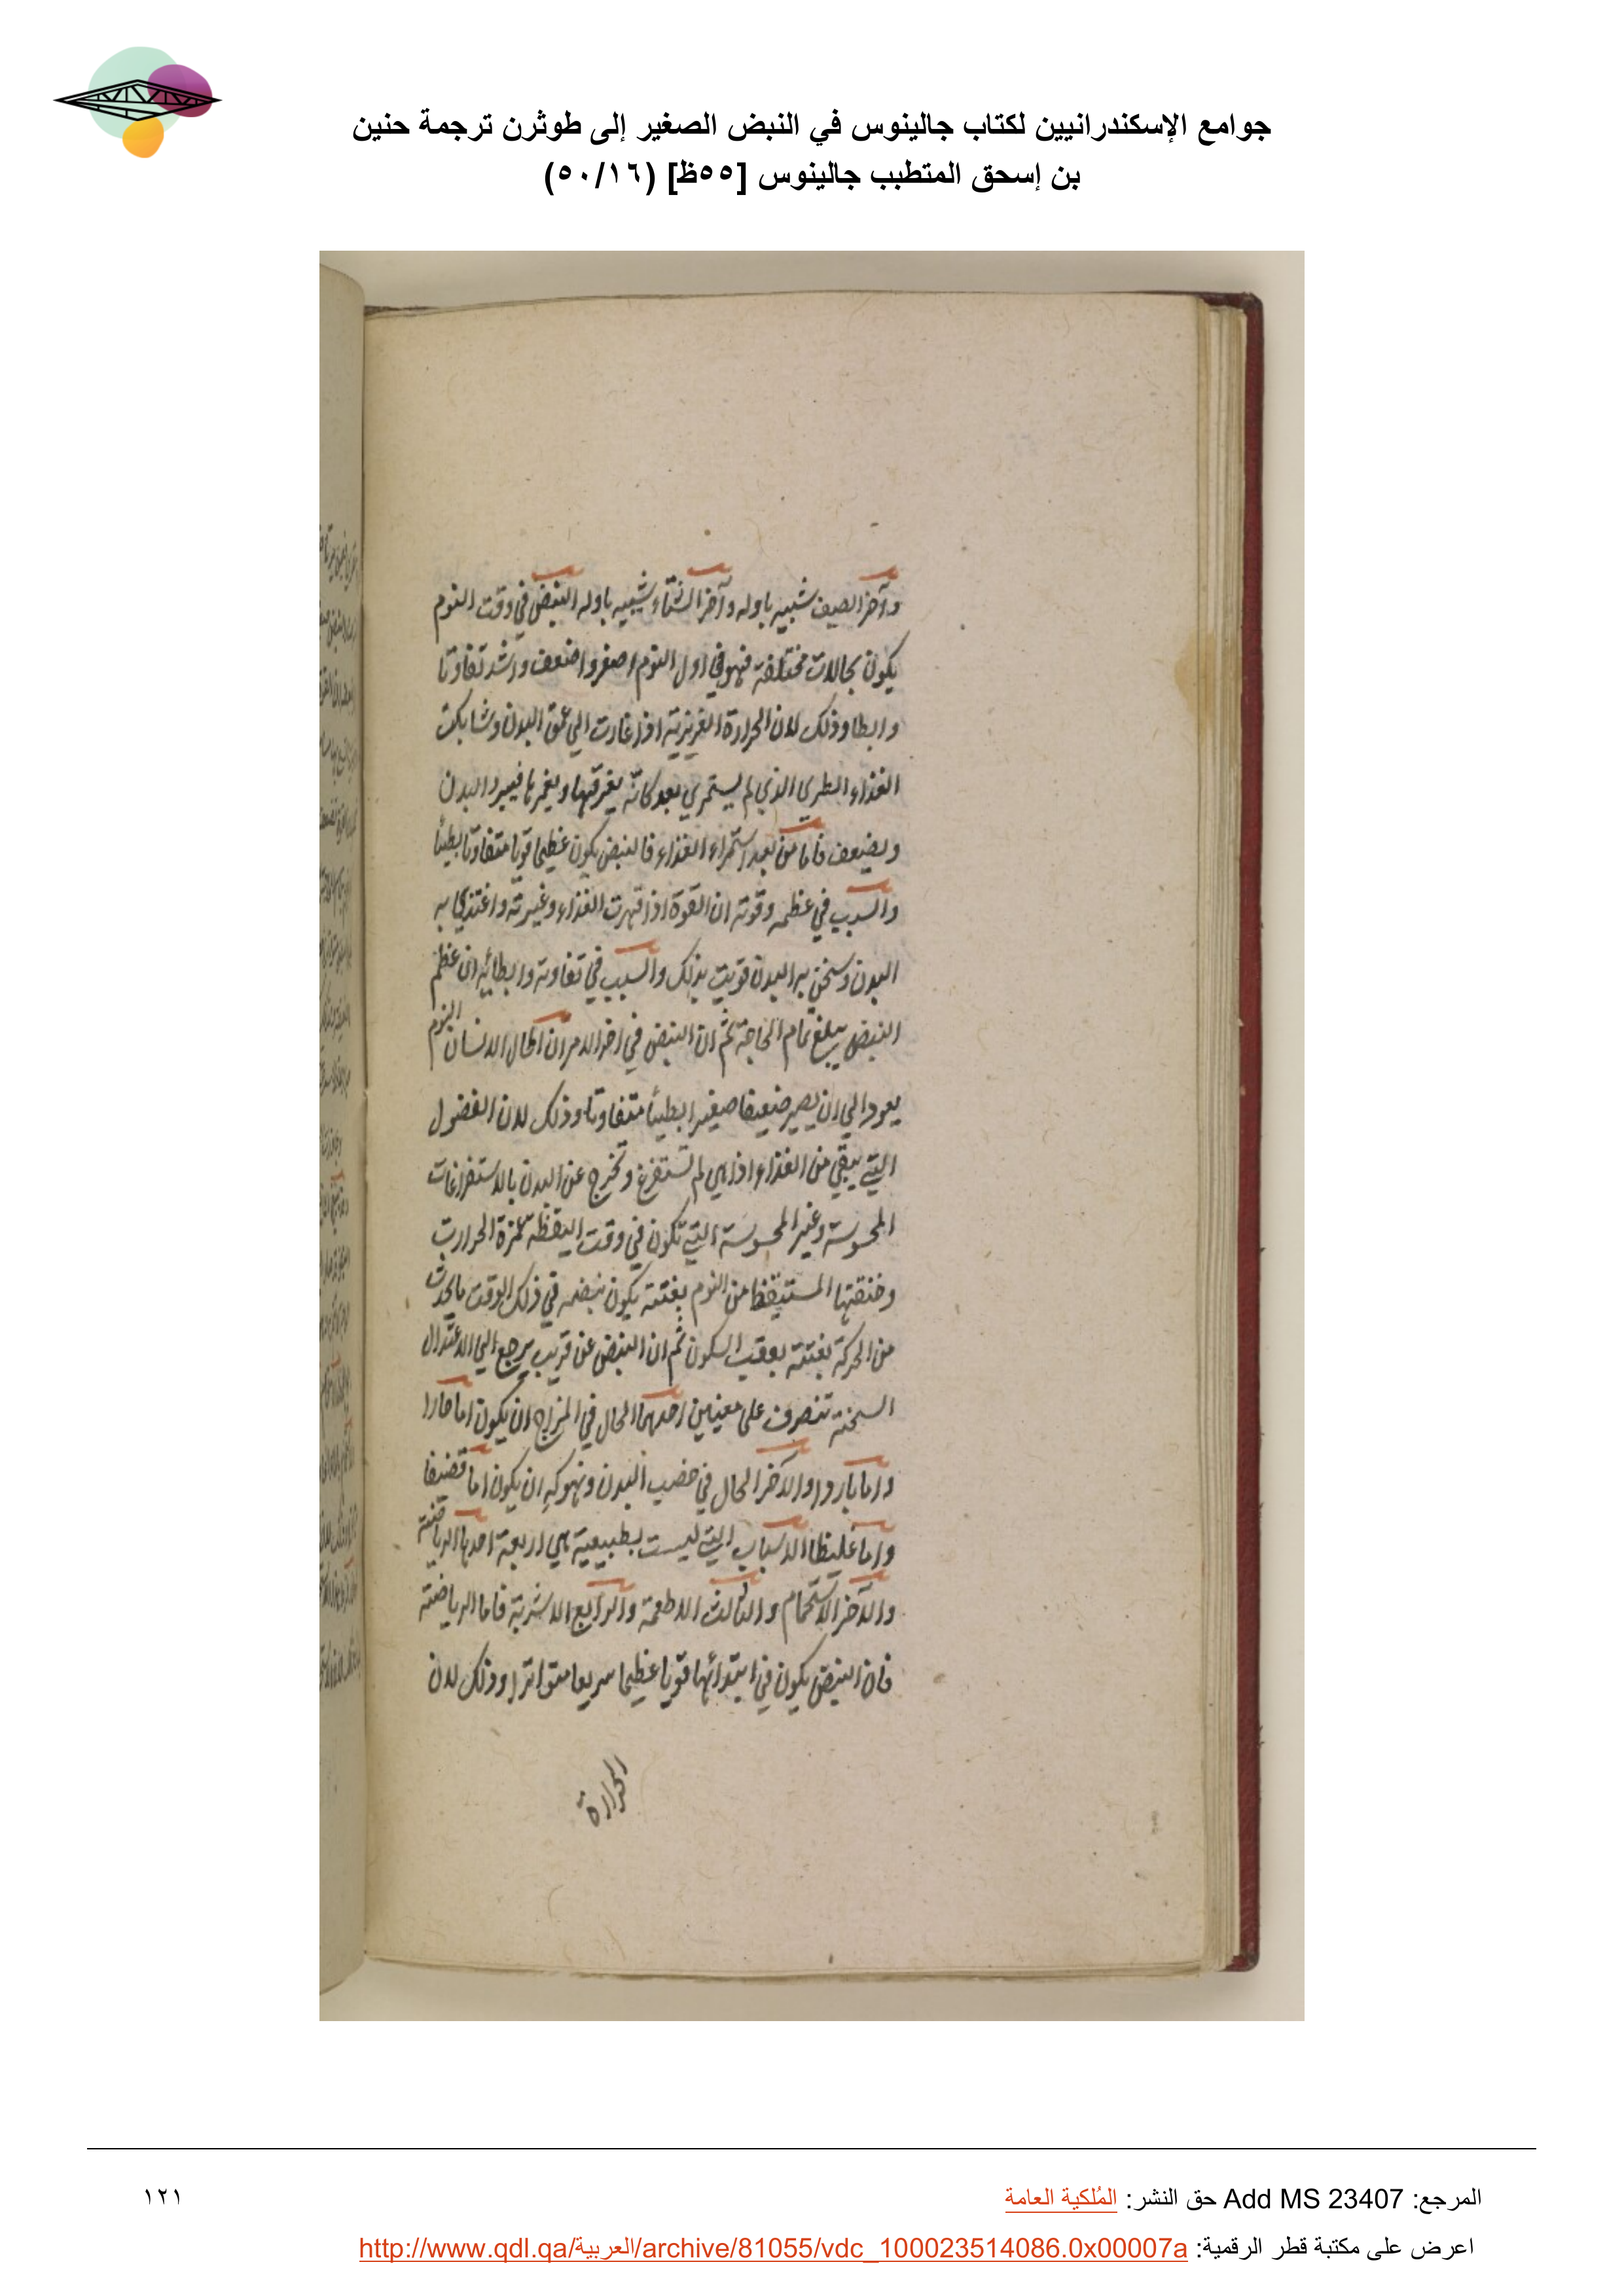 جوامع الإسكندرانيين لكتاب جالينوس في النبض الصغير إلى طوثرن ترجمة حنين
بن إسحق المتطبب جالينوس [٥٥ظ] (٥٠/١٦)
وآخر الصيف شبيه باوله وآخر الشتاء شبيه باوله النبض في وقت النوم
يكون بحالات مختلفة فهو في اول النوم اصغر واضعف واشد تفاوتا
وابطا وذلك لان الحرارة الغريزية اذا غارت الي عمق البدن وشابكت
الغذاء الطري الذي لم يستمري بعد كانه يغرقها ويغمرها فيبرد البدن
ويضعف فاما من بعد استمراء الغذاء فالنبض يكون عظيما قويا متفاوتا بطيئا
والسبب في عظمه وقوته ان القوة اذا قهرت الغذاء وغيرته واغتذي به
البدن وسخن به البدن قويت بذلك والسبب في تفاوته وابطائه ان عظم
النبض يبلغ تمام الحاجة ثم ان النبض في اخر الامر ان اطال الانسان النوم
يعود الي ان يصير ضعيفا صغيرا بطيئا متفاوتا وذلك لان الفضول
التي يبقي من الغذاء اذا هي لم تستفرغ وتخرج عن البدن بالاستفراغات
المحسوسة وغير المحسوسة التي تكون في وقت اليقظة الحرارت
وخنقتها المستيقظ من النوم بغتة يكون نبضه في ذلك الوقت ما يحدث
من الحركة بغتة بعقب السكون ثم ان النبض عن قريب يرجع الي الاعتدال
السحنة تنصرف على معنيين احدهما الحال في المزاج ان يكون اما حارا
واما باردا والآخر الحال في خصب البدن ونهوكه ان يكون اما قضيفا
واما غليظا الاسباب التي ليست بطبيعية هي اربعة احدها الرياضة
والآخر الاستحمام والثالث الاطعمة والرابع الاشربة فاما الرياضة
فان النبض يكون في ابتدائها قويا عظيما سريعا متواترا وذلك لان
الحرارة
المرجع: Add MS 23407 حق النشر: المُلكية العامة
١٢١
اعرض على مكتبة قطر الرقمية: http://www.qdl.qa/العربية/archive/81055/vdc_100023514086.0x00007a